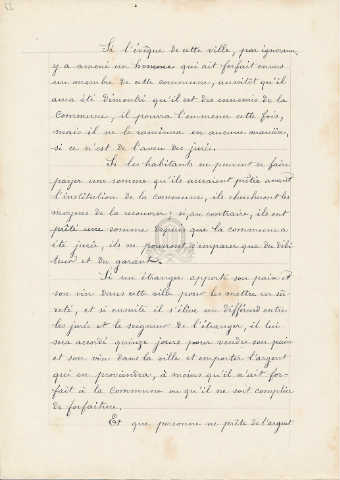 Si l'évêque de cette ville, par ignorance,
y a amené un homme qui ait forfait envers
un membre de cette commune, aussitôt qu'il
aura été démontré qu'il est des ennemis de la
Commune, il pourra l'emmener cette fois,
mais il ne le ramènera en aucune manière,
si ce n'est de l'aveu des jurés.
Si les habitants ne peuvent se faire
payer une somme qu'ils auraient prêtée avant
l'institution de la commune, ils chercheront les
moyens de la recouvrer ; si, au contraire, ils ont
prêté une somme depuis que la commune a
été jurée, ils ne pourront s'emparer que du débi-
teur et du garant.
Si un étranger apporte son pain et
son vin dans cette ville pour les mettre en sû-
reté, et si ensuite il s'élève un différend entre
les jurés et le seigneur de l'étranger, il lui
sera acordé quinze jours pour vendre son pain
et son vin dans la ville et emporter l'argent
qui en proviendra, à moins qu'il n'ait for-
fait à la Commune ou qu'il ne soit complice
de forfaiture.
Et que personne ne prête de l'argent